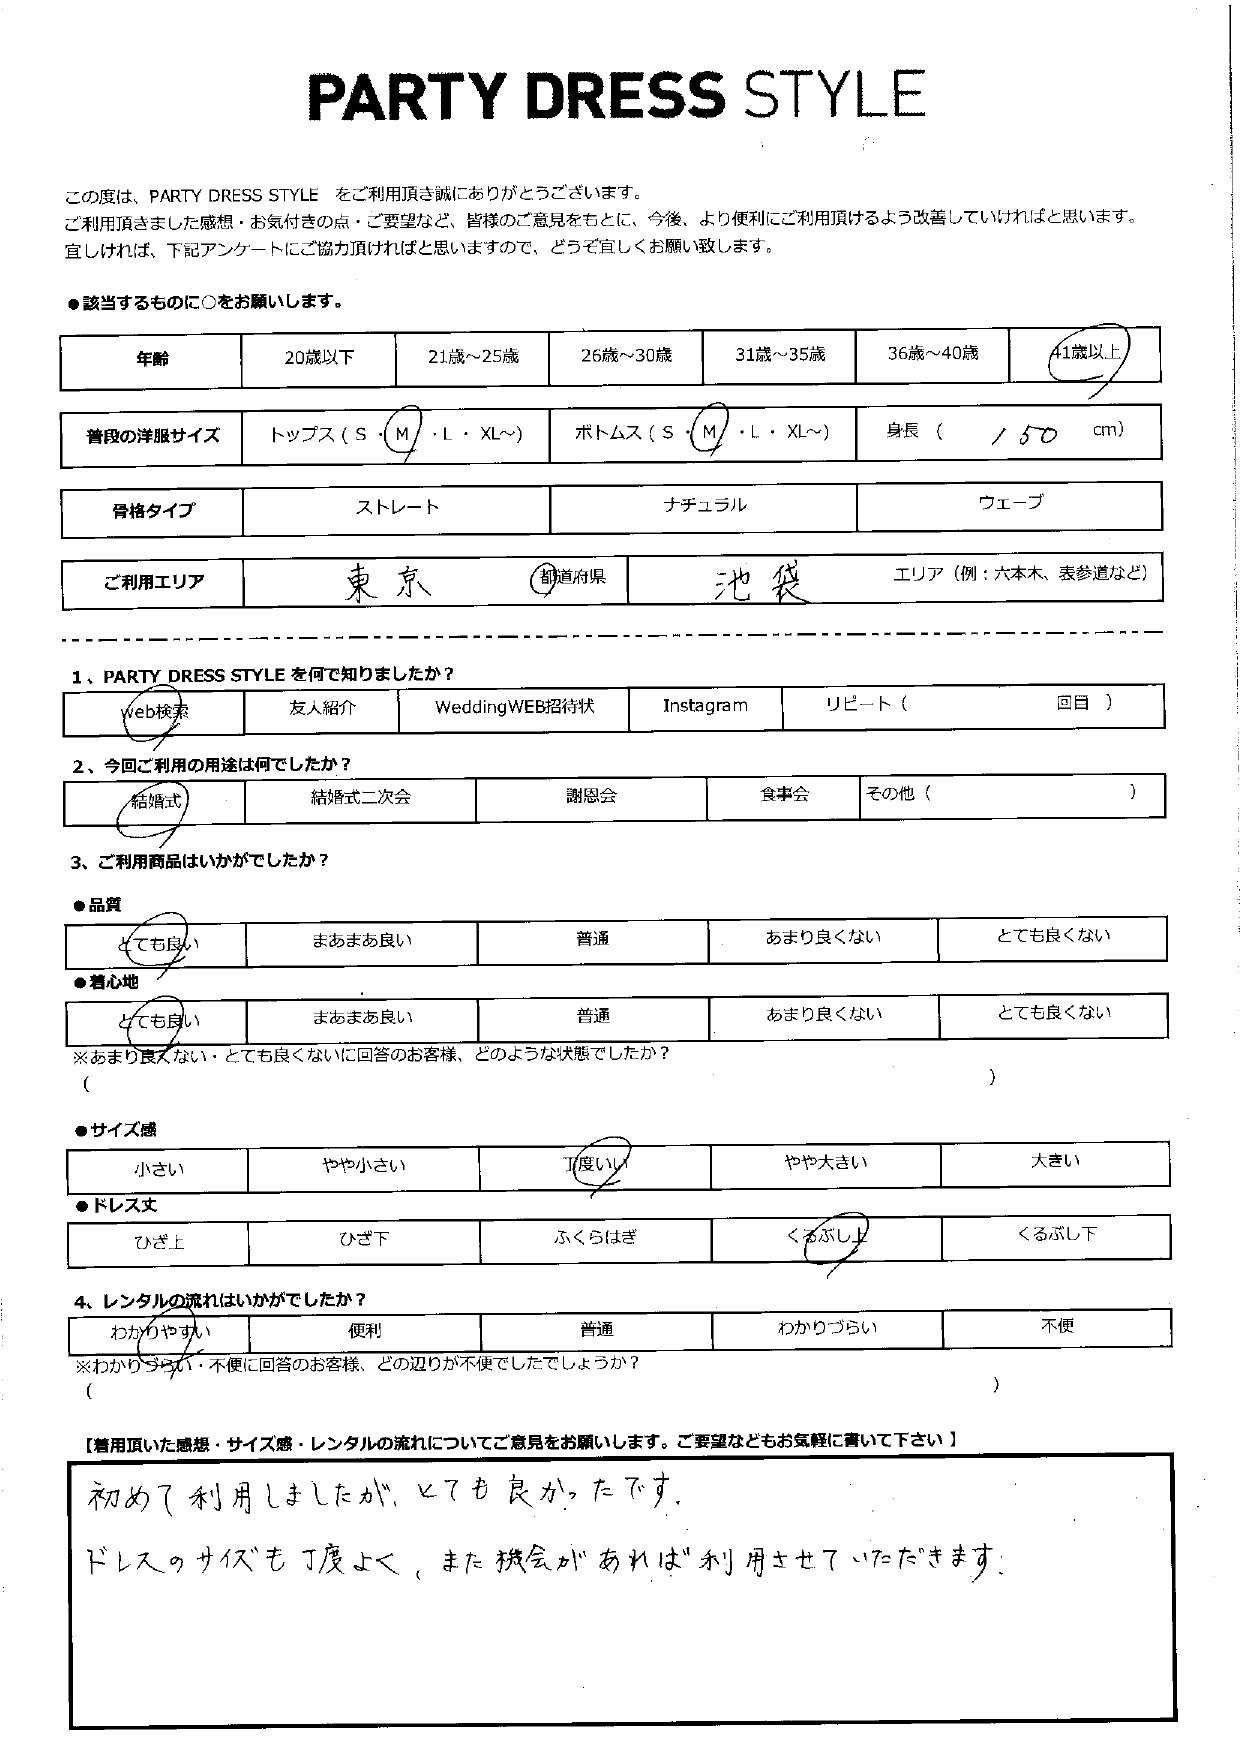 PARTY DRESS STYLE
この度は、PARTY DRESS STYLE をご利用頂き誠にありがとうございます。
ご利用頂きました感想・お気付きの点・ご要望など、皆様のご意見をもとに、今後、より便利にご利用頂けるよう改善していければと思います。
宜しければ、下記アンケートにご協力頂ければと思いますので、どうぞ宜しくお願い致します。
●該当するものに○をお願いします。
年齢 20歳以下 21歳～25歳 26歳～30歳 31歳～35歳 36歳～40歳 41歳以上
普段の洋服サイズ トップス（ S ・ M ・L ・ XL～） ボトムス（ S ・ M ・L ・ XL～） 身長 （ 150 cm）
骨格タイプ ストレート ナチュラル ウェーブ
ご利用エリア 東京 都道府県 池袋 エリア（例：六本木、表参道など）
1、PARTY DRESS STYLE を何で知りましたか？
Web検索 友人紹介 WeddingWEB招待状 Instagram リピート（ 回目 ）
2、今回ご利用の用途は何でしたか？
結婚式 結婚式二次会 謝恩会 食事会 その他（ ）
3、ご利用商品はいかがでしたか？
●品質
とても良い まあまあ良い 普通 あまり良くない とても良くない
●着心地
とても良い まあまあ良い 普通 あまり良くない とても良くない
※あまり良くない・とても良くないに回答のお客様、どのような状態でしたか？
（ ）
●サイズ感
小さい やや小さい 丁度いい やや大きい 大きい
●ドレス丈
ひざ上 ひざ下 ふくらはぎ くるぶし上 くるぶし下
4、レンタルの流れはいかがでしたか？
わかりやすい 便利 普通 わかりづらい 不便
※わかりづらい・不便に回答のお客様、どの辺りが不便でしたでしょうか？
（ ）
【着用頂いた感想・サイズ感・レンタルの流れについてご意見をお願いします。ご要望などもお気軽に書いて下さい 】
初めて利用しましたが、とても良かったです。
ドレスのサイズも丁度よく、また機会があれば利用させていただきます。